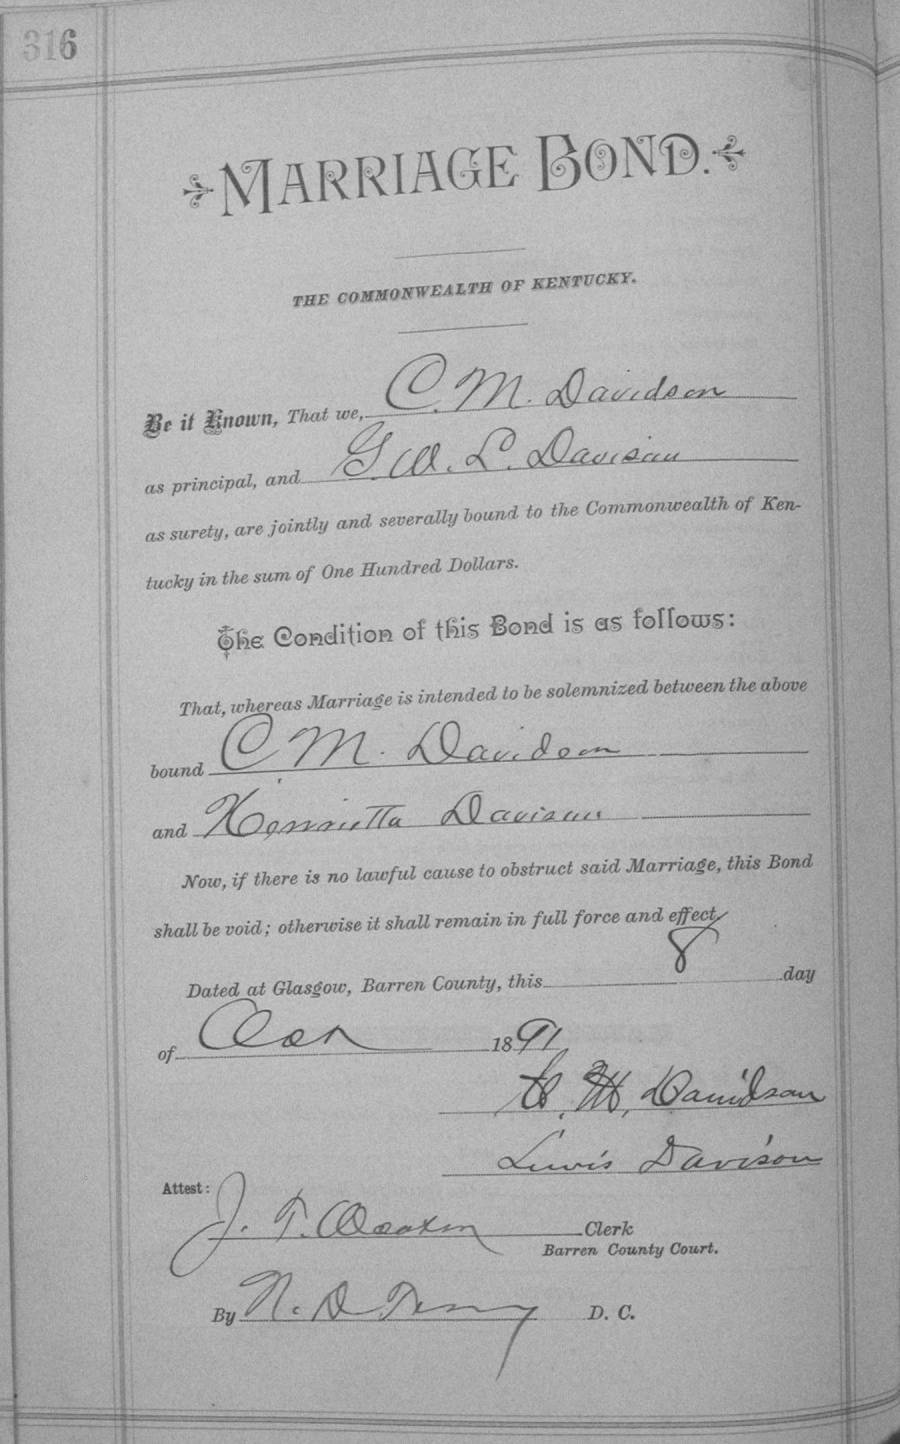 316
MARRIAGE BOND.
THE COMMONWEALTH OF KENTUCKY.
Be it Known, That we, C. M. Davidson
as principal, and G. W. L. Davison
as surety, are jointly and severally bound to the Commonwealth of Ken-
tucky in the sum of One Hundred Dollars.
The Condition of this Bond is as follows:
That, whereas Marriage is intended to be solemnized between the above
bound C. M. Davidson
and Henrietta Davison
Now, if there is no lawful cause to obstruct said Marriage, this Bond
shall be void; otherwise it shall remain in full force and effect.
Dated at Glasgow, Barren County, this 8 day
of 1891
C. M. Davidson
Lewis Davison
Attest:
J. T. Clerk
Barren County Court.
By N. D. D. C.